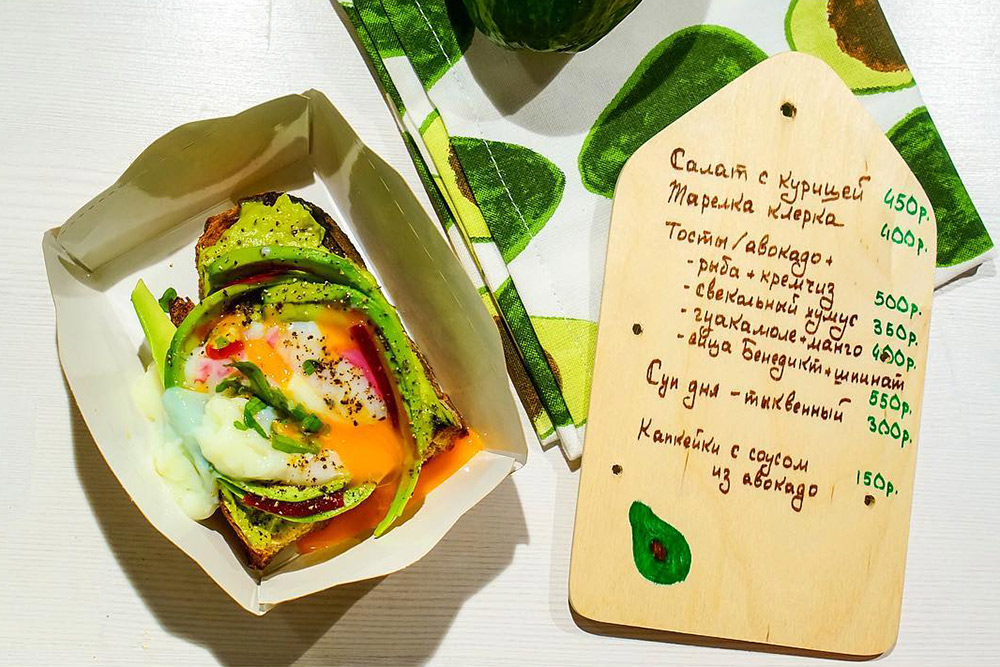 Салат с курицей 450р.
Тарелка клерка 400р.
Тосты/авокадо+
- рыба + кремчиз 500р.
- свекальный хумус 350р.
- гуакамоле+манго 400р.
- яйца Бенедикт+шпинат 550р.
Суп дня - тыквенный 300р.
Капкейки с соусом
из авокадо 150р.